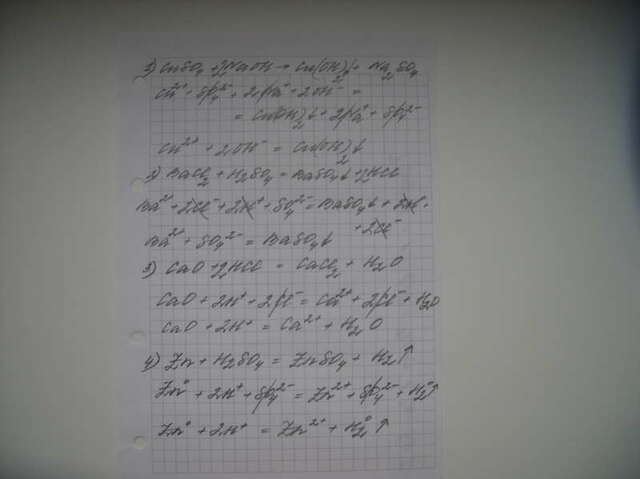 1) CuSO₄ + 2NaOH → Cu(OH)₂↓ + Na₂SO₄
Cu²⁺ + SO₄²⁻ + 2Na⁺ + 2OH⁻ =
= Cu(OH)₂↓ + 2Na⁺ + SO₄²⁻
Cu²⁺ + 2OH⁻ = Cu(OH)₂↓
2) BaCl₂ + H₂SO₄ = BaSO₄↓ + 2HCl
Ba²⁺ + 2Cl⁻ + 2H⁺ + SO₄²⁻ = BaSO₄↓ + 2H⁺
+ 2Cl⁻
Ba²⁺ + SO₄²⁻ = BaSO₄↓
3) CaO + 2HCl = CaCl₂ + H₂O
CaO + 2H⁺ + 2Cl⁻ = Ca²⁺ + 2Cl⁻ + H₂O
CaO + 2H⁺ = Ca²⁺ + H₂O
4) Zn + H₂SO₄ = ZnSO₄ + H₂↑
Zn⁰ + 2H⁺ + SO₄²⁻ = Zn²⁺ + SO₄²⁻ + H₂⁰↑
Zn⁰ + 2H⁺ = Zn²⁺ + H₂⁰↑